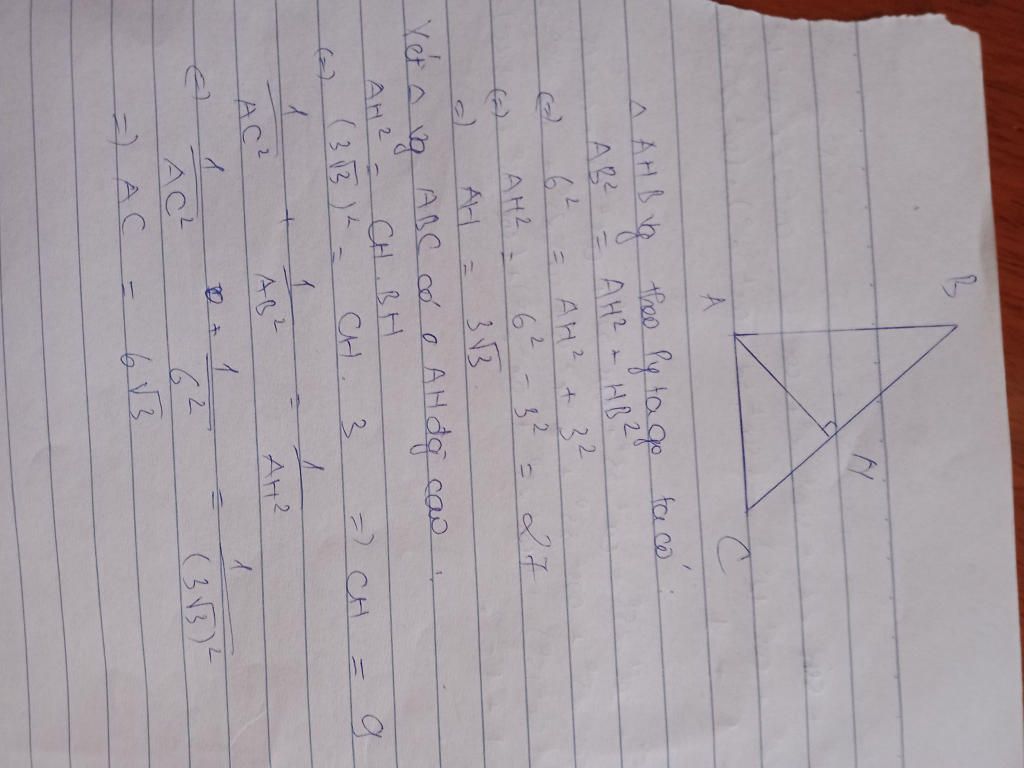 B
A
H
C
Δ AHB vg theo Pytago ta có:
AB² = AH² + HB²
(=) 6² = AH² + 3²
(=) AH² = 6² - 3² = 27
=) AH = 3√3.
Xét Δ vg ABC có AH đg cao.
AH² = CH.BH
(=) (3√3)² = CH. 3 =) CH = 9
1/AC² + 1/AB² = 1/AH²
(=) 1/AC² + 1/6² = 1/(3√3)²
=) AC = 6√3